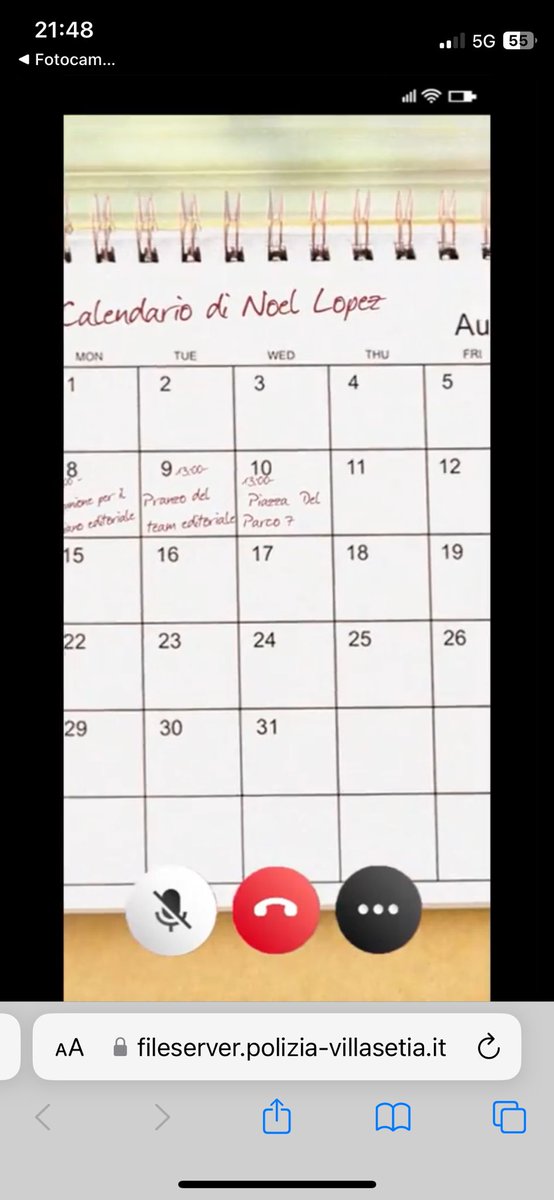 21:48
5G 55
◀ Fotocam...
Calendario di Noel Lopez
Au
MON TUE WED THU FRI
1 2 3 4 5
8 9 13:00- 10 11 12
13:00-
per il Pranzo del Piazza Del
editoriale team editoriale Parco 7
15 16 17 18 19
22 23 24 25 26
29 30 31
AA fileserver.polizia-villasetia.it